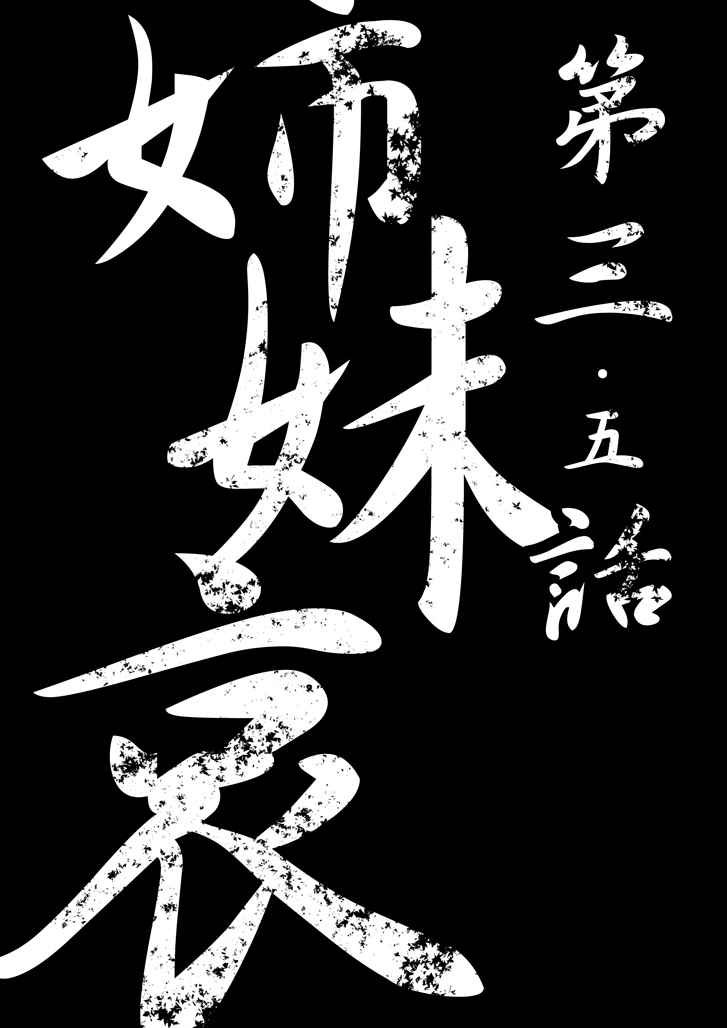 第三・五話
姉妹哀